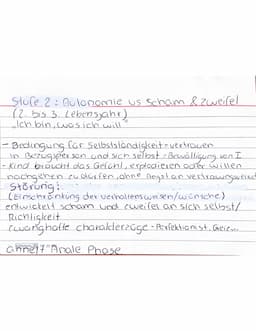 Stufe 2: Autonomie vs Scham & Zweifel
(2. bis 3. Lebensjahr)
„Ich bin, was ich will"
- Bedingung für Selbstständigkeit = vertrauen
in Bezugsperson und sich selbst - Bewältigung von I
- Kind braucht das Gefühl, explodieren oder willen
nachgehen zu dürfen, ohne Angst an
Störung:
(Einschränkung der verhaltensweisen/wünsche)
entwickelt scham und zweifel an sich selbst/
Richtigkeit
zwanghafte charakterzüge - Perfektionist, Geiz...
ähnelt Anale Phase